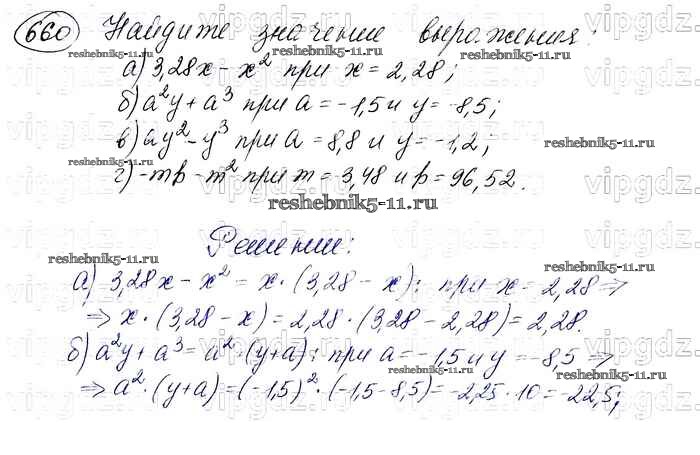 660 Найдите значение выражения:
а) 3,28x - x² при x = 2,28;
б) a²y + a³ при a = -1,5 и y = -8,5;
в) ay² - y³ при a = 8,8 и y = -1,2;
г) -mp - m² при m = -3,48 и p = 96,52.
Решение:
а) 3,28x - x² = x · (3,28 - x); при x = 2,28 ⇒
⇒ x · (3,28 - x) = 2,28 · (3,28 - 2,28) = 2,28.
б) a²y + a³ = a² · (y + a); при a = -1,5 и y = -8,5 ⇒
⇒ a² · (y + a) = (-1,5)² · (-1,5 - 8,5) = -2,25 · 10 = -22,5;
vipgdz
reshebnik5-11.ru